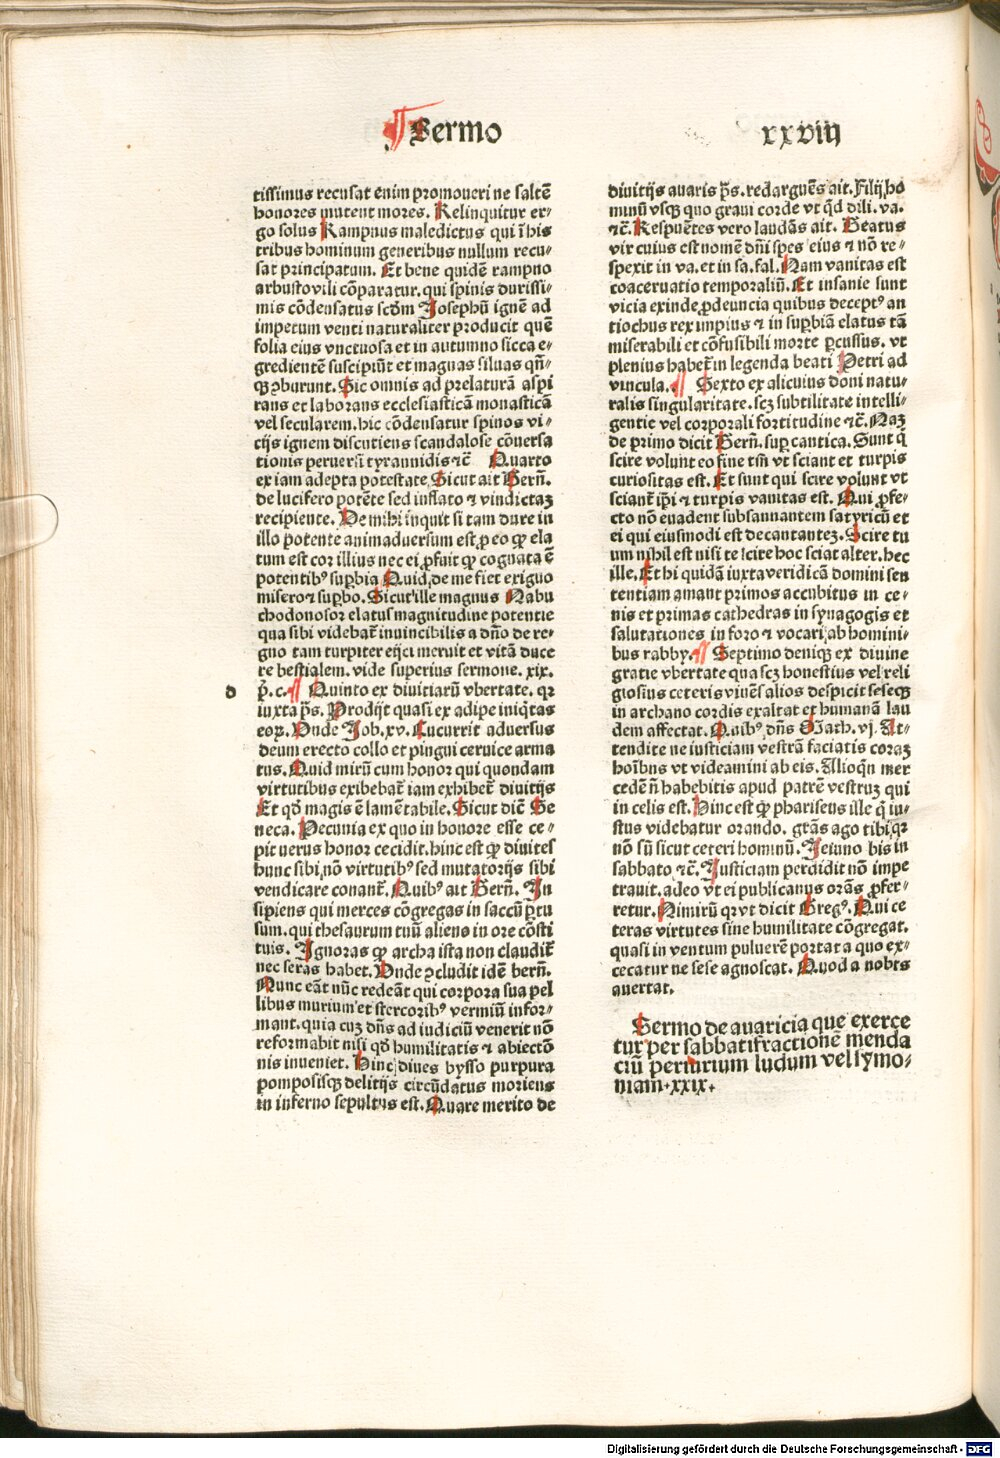 ¶ Sermo xxviij
tissimus recusat enim promoueri ne saltē
honores mutent mores. Relinquitur er⸗
go solus Rampnus maledictus qui ī his
tribus hominum generibus nullum recu⸗
sat principatum. Et bene quidē rampno
arbusto vili cōparatur. qui spinis durissi⸗
mis cōdensatus scd̄m Josephū ignē ad
impetum venti naturaliter producit quē
folia eius vnctuosa et in autumno sicca e⸗
gredientē suscipiūt et magnas siluas qn̄⸗
qꝫ ꝯburunt. Sic omnis ad prelaturā aspi
rans et laborans ecclesiasticā monasticā
vel secularem. hic cōdensatur spinos vi⸗
cijs ignem discutiens scandalose cōuersa
tionis peruersi tyrannidis ⁊c̄ Quarto
ex iam adepta potestate. Sicut ait Bern̄.
de lucifero potēte sed inflato ⁊ vindictaꝫ
recipiente. Ue mihi inquit si tam dure in
illo potente animaduersum est. ꝓ eo ꝙ ela
tum est cor illius nec ei ꝓfuit ꝙ cognata ē
potentibꝰ suꝑbia Quid de me fiet exiguo
misero ⁊ suꝑbo. Sicut ille magnus Nabu
chodonosor elatus magnitudine potentie
qua sibi videbat̄ inuincibilis a dn̄o de re⸗
gno tam turpiter eijci meruit et vitā duce
re bestialem. vide superius sermone. xix.
D
p̄. c. ¶ Quinto ex diuitiarū vbertate. qꝛ
iuxta p̄s. Prodijt quasi ex adipe iniq̇tas
eoꝝ. Unde Job. xv. Cucurrit aduersus
deum erecto collo et pingui ceruice arma
tus. Quid mirū cum honor qui quondam
virtutibus exibebat̄ iam exhibet̄ diuitijs
Et qđ magis ē lamētabile. Sicut dic̄ Se
neca. Pecunia ex quo in honore esse ce⸗
pit verus honor cecidit. hinc est ꝙ diuites
hunc sibi nō virtutibꝰ sed mutatorijs sibi
vendicare conant̄. Quibꝰ ait Bern̄. In
sipiens qui merces cōgregas in saccū ꝑtu
sum. qui thesaurum tuū alieno in ore cōsti
tuis. Ignoras ꝙ archa ista non claudit̄
nec seras habet. Unde ꝯcludit idē bern̄.
Nunc eāt nūc redeāt qui corpora sua pel
libus murium et stercoribꝰ vermiū infor⸗
mant. quia cuꝫ dn̄s ad iudiciū venerit nō
reformabit nisi qđ humilitatis ⁊ abiectō
nis inueniet. Hinc diues bysso purpura
pomposisqꝫ delitijs circūdatus moriens
in inferno sepultus est. Quare merito de
diuitijs auaris p̄s. redarguēs ait. Filij ho
minū vsqꝫ quo graui corde vt qđ dili. va.
⁊c̄. Respuētes vero laudās ait. Beatus
vir cuius est nomē dn̄i spes eius ⁊ nō re⸗
spexit in va. et in sa. fal. Nam vanitas est
coaceruatio temporaliū. Et insanie sunt
vicia exinde ꝓdeuncia quibus deceptꝰ an
tiochus rex impius ⁊ in suꝑbiā elatus tā
miserabili et cōfusibili morte ꝑcussus. vt
plenius habet̄ in legenda beati Petri ad
vincula. ¶ Sexto ex alicuius doni natu⸗
ralis singularitate. scꝫ subtilitate intelli⸗
gentie vel corporali fortitudine ⁊c̄. Naꝫ
de primo dicit Bern̄. suꝑ cantica. Sunt q̇
scire volunt eo fine tm̄ vt sciant et turpis
curiositas est. Et sunt qui scire volunt vt
sciant̄ ip̄i ⁊ turpis vanitas est. Qui ꝓfe⸗
cto nō euadent subsannantem satyricū et
ei qui eiusmodi est decantanteꝫ. Scire tu
um nihil est nisi te scire hoc sciat alter. hec
ille. Et hi quidā iuxta veridicā domini sen
tentiam amant primos accubitus in ce⸗
nis et primas cathedras in synagogis et
salutationes in foro ⁊ vocari ab homini⸗
bus rabby. ¶ Septimo denique ex diuine
gratie vbertate qua scꝫ honestius vel reli
giosius ceteris viuēs alios despicit seseqꝫ
in archano cordis exaltat et humanā lau
dem affectat. Quibꝰ dn̄s Math. vj. At⸗
tendite ne iusticiam vestrā faciatis coraꝫ
hoībus vt videamini ab eis. Alioqn̄ mer
cedē n̄ habebitis apud patrē vestruꝫ qui
in celis est. Hinc est ꝙ phariseus ille q̇ iu⸗
stus videbatur orando. grās ago tibi qꝛ
nō sū sicut ceteri hominū. Jeiuno bis in
sabbato ⁊c̄. Justiciam perdidit nō impe
trauit. adeo vt ei publicanus orās ꝓfer⸗
retur. Nimirū qꝛ vt dicit Gregꝰ. Qui ce
teras virtutes sine humilitate cōgregat.
quasi in ventum puluerē portat a quo ex⸗
cecatur ne sese agnoscat. Quod a nobis
auertat.
Sermo de auaricia que exerce
tur per sabbati fractionē menda
ciū periurium ludum vel symo⸗
niam. xxix.
Digitalisierung gefördert durch die Deutsche Forschungsgemeinschaft - DFG